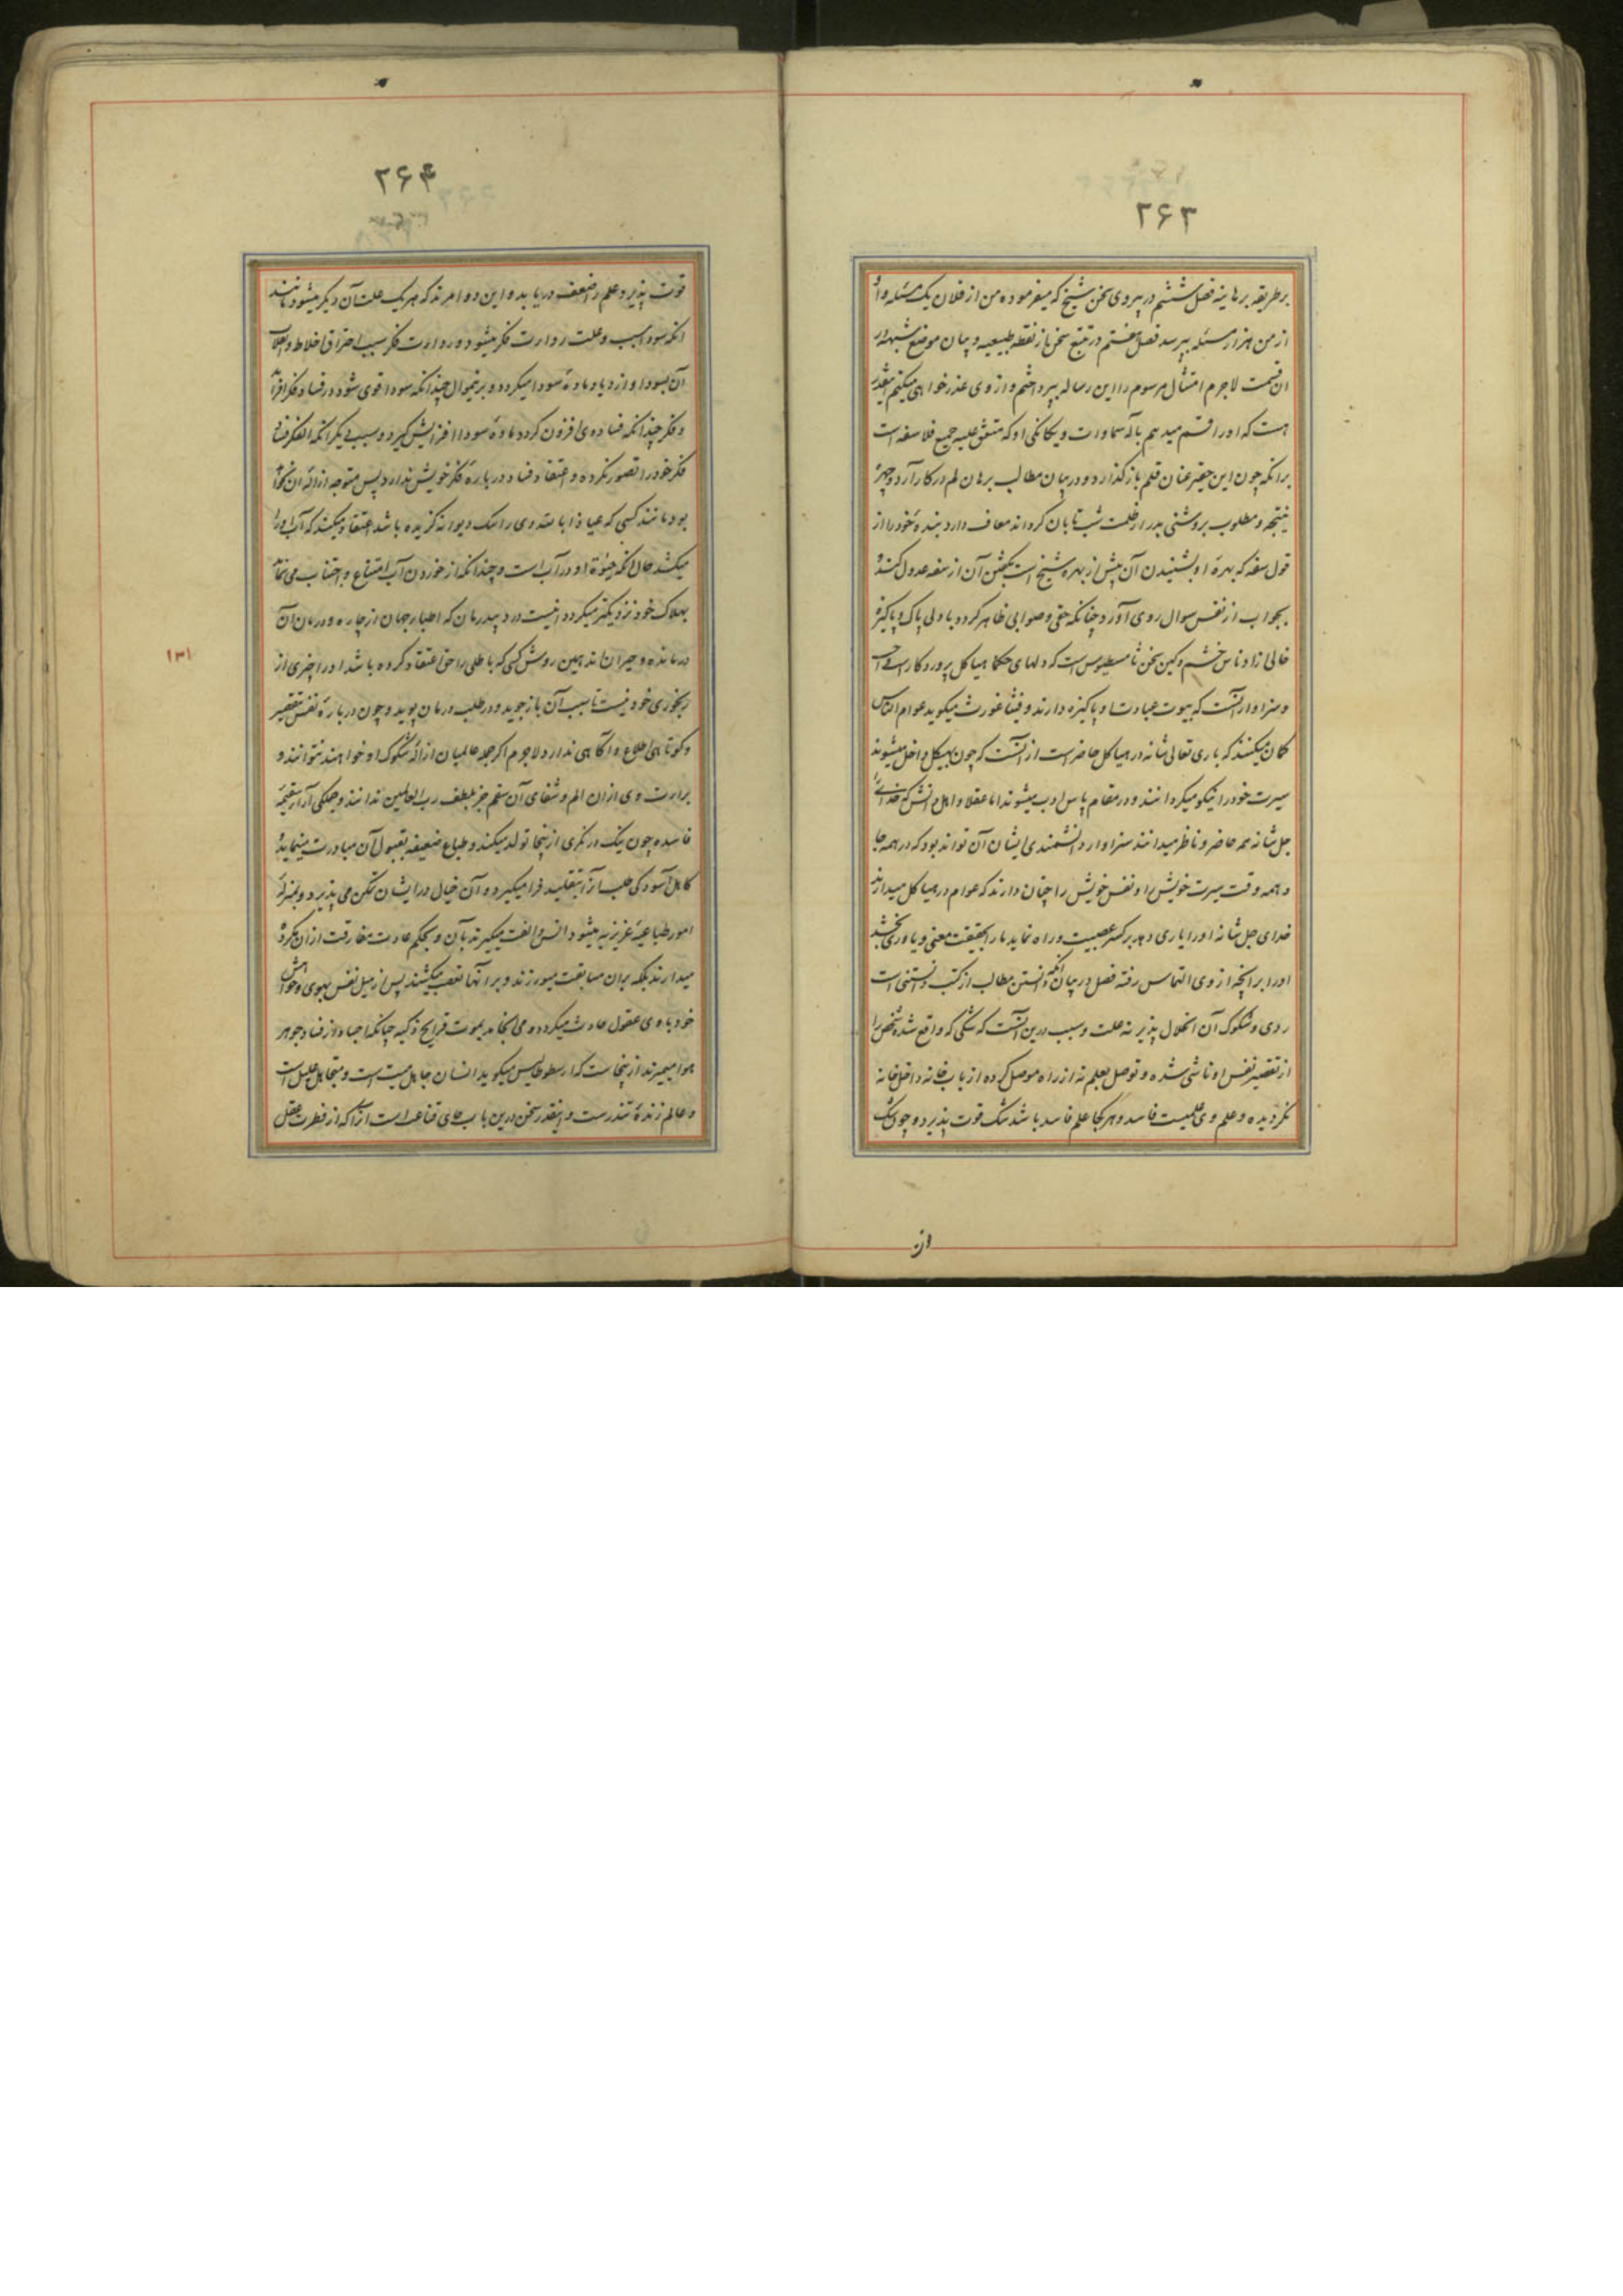 ۲۶۳
بر طریقه برهانیه فصل ششم در پیروی سخن شیخ که میفرموده من از فلان یک مسئله و او
از من هزار مسئله بپرسد فصل هفتم در تتبع سخن باز نقطه طبیعیه و بیان موضع شبهه در
ان قسمت لاجرم امتثال مرسوم را این رساله بپرداختم و از وی عذر خواهی میکنم اینقدر
هست که او را قسم میدهم بآله سماوات و یکانکی او که متفق علیه جمیع فلاسفه است
برانکه چون این حقیر عنان قلم باز کذارد و در بیان مطالب برهان لم در کار آرد و چهره
نتیجه و مطلوب بروشنی بدر از ظلمت شب تابان کرداند معاف دارد بنده خود را از
قول سفه که بهره او بشنیدن آن بیش از بهره شیخ است بکفتن آن از سفه عدول کند و
بجواب از نفس سوال روی آورد چنانکه حق و صوابی ظاهر کردد با دلی پاک و پاکیزه
خالی از ادناس خشم و کین سخن ثامسطیوس است که دلهای حکما هیاکل پروردکار است
و سزاوار آنست که بیوت عبادت او پاکیزه دارند و فیثاغورث میکوید عوام الناس
کمان میکنند که باری تعالی شانه در هیاکل حاضر است از آنست که چون بهیکل داخل میشوند
سیرت خود را نیکو میکردانند و در مقام پاس ادب میشوند اما عقلا و اهل دانش که خدای را
جل شانه همه حاضر و ناظر میدانند سزاوار دانشمندی ایشان آن تواند بود که در همه جا
و همه وقت سیرت خویش را و نفس خویش را چنان دارند که عوام در هیاکل میدارند
خدای جل شانه او را یاری دهد بر کسر عصبیت و راه نماید ما را بحقیقت معنی و یاوری بخشد
او را بر آنچه از وی التماس رفته فصل در بیان آنکه دانستن مطالب از کتب دانستنی است
ردی و شکوک آن انحلال پذیر نه علت و سبب درین آنست که شکی که واقع شده شخص را
از تقصیر نفس او ناشی شده و توصل بعلم نه از راه موصل کرده از باب خانه داخل خانه
نکردیده و علم وی علمیست فاسد و هر کجا علم فاسد باشد شک قوت پذیرد و چون شک
از
۲۶۴
قوت پذیرد علم ضعف دریابد و این دو امرند که هر یک علت آن دیکر میشود مانند
انکه سودا سبب و علت رداءت فکر میشود و رداءت فکر سبب احتراق اخلاط و انقلاب
آن بسودا و ازدیاد ماده سودا میکردد و برینمنوال چندانکه سودا قوی شود در فساد فکر افزاید
و فکر چندانکه فساد وی افزون کردد ماده سودا افزایش کیرد و سبب دیکر آنکه
فکر خود را تصور نکرده و اعتقاد فساد درباره فکر خویش ندارد پس متوجه ازاله آن
بود مانند کسی که عیاذا بالله وی را سک دیوانه کزیده باشد اعتقاد میکند که آب او را
میکشد حال آنکه حیوة او در آب است و چندانکه از خوردن آب امتناع و اجتناب می نماید
بهلاک خود نزدیکتر میکردد اینست درد بیدرمان که اطبا جهان از چاره و درمان آن
درمانده و حیران اند همین روش کسی که باطلی را حق اعتقاد کرده باشد او را خبری از
رنجوری خود نیست تا سبب آن باز جوید و در طلب درمان پوید و چون درباره نفس بتقصیر
و کوتاهی اطلاع و آکاهی ندارد لاجرم اکر جمله عالمیان ازاله شکوک او خواهند نتوانند و
براءت وی از ان الم و شفای آن سقم جز بلطف رب العالمین ندانند و جملکی آراء سقیمه
فاسده چون نیک در نکری از اینجا تولد میکند و طباع ضعیفه بقبول آن مبادرت مینماید و
کاهل آسودکی طلب آنرا بتقلید فرا میکیرد و آن خیال در ایشان تمکن می پذیرد و بمنزله
امور طباعیه غریزیه میشود و انس و الفت میکیرند بآن و بحکم عادت مفارقت از ان مکروه
میدارند بلکه بر ان مسابقت میورزند و بر آنها تعصب میکشند پس از میل نفس بهوی و خواهش
خود بلای عقول حادث میکردد و می انجامد بموت قرایح ذکیه چنانکه اجساد از فساد جوهر
هوا میمیرند از اینجاست که ارسطوطالیس میکوید انسان جاهل میت است و متجاهل علیل است
و عالم زنده تندرست و اینقدر سخن درین باب جای قناعت است آنرا که از فطرت عقل
۱۳۱